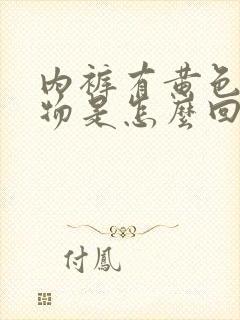 内裤有黄色
物是怎麼回
付鳳